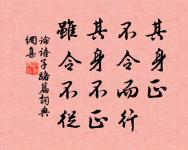 其身正
不令而行
其身不正
雖令不從
論語子路篇詞典
網集